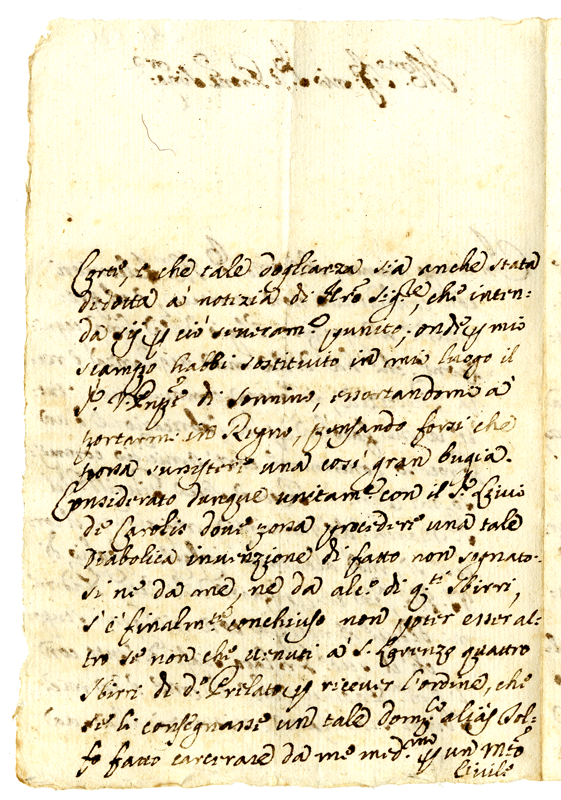 Corte, e che tale doglianza sia anche stata
dedotta a' notizia di Vro Sigre, che inten:
da sij p ciò severamte punito; onde p mio
scampo habbi sostituito in mio luogo il
Sr. di Sonnino, essortandomi à
portarmi in Regno, pensando forsi che
possa sussistere una così gran bugia.
Considerato dunque unitamte con il Sr. Livio
de Carolis dove possa procedere una tale
Diabolica invenzione di fatto non sognato-
si ne da me, ne da alco di qti sbirri,
s'è finalmte conchiuso non poter esser al-
tro se non che venuti à S. Lorenzo quattro
sbirri di do Prelato p ricever l'ordine, che
se li consegnasse un tale Domco alias Sol-
fo fatto carcerare da me medmo p un Mto
Civile